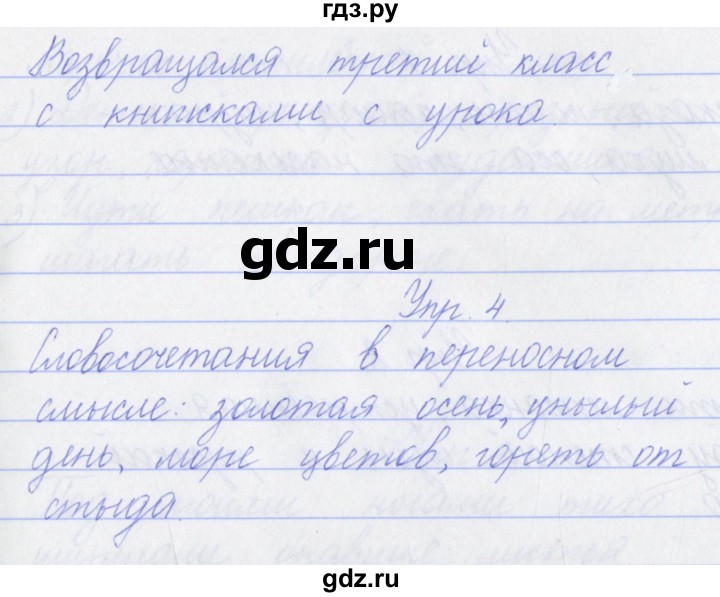 гдз.ру
Возвращался третий класс
с книжками с урока
gdz.ru
Упр. 4.
Словосочетания в переносном
смысле: золотая осень, унылый
день, море цветов, гореть от
стыда.
gdz.ru